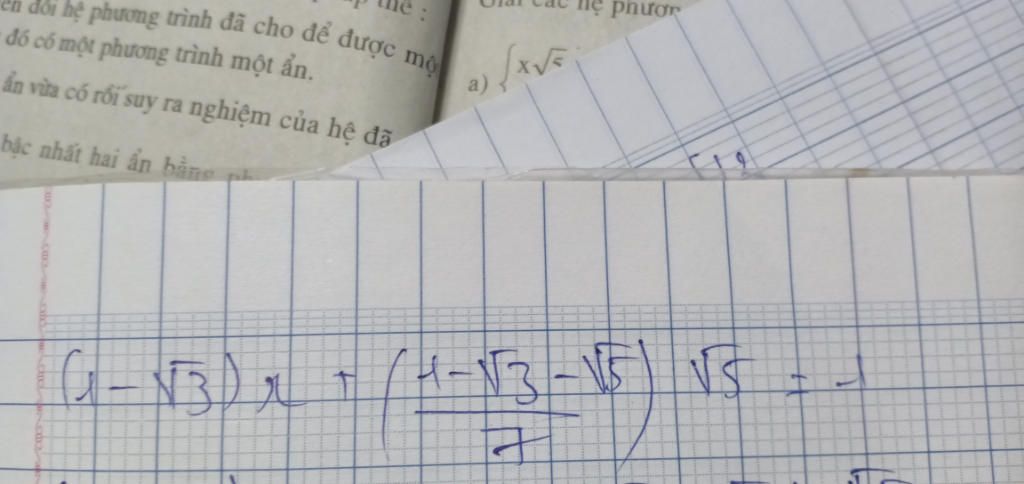 đổi hệ phương trình đã cho để được
đó có một phương trình một ẩn.
ẩn vừa có rồi suy ra nghiệm của hệ đã
bậc nhất hai ẩn bằng
thế :
Giải các hệ phươn
a) { x√5
(1 - √3) x + ((1 - √3 - √5)/7) √5 = 1